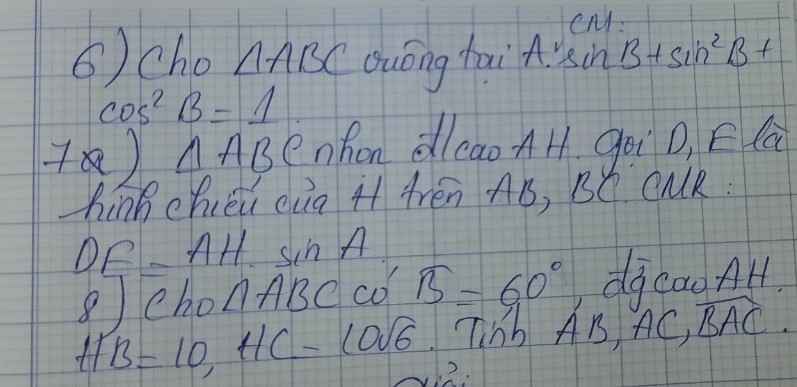 CM:
6) Cho ΔABC vuông tại A. sin B + sin² B +
cos² B = 1.
7a) ΔABC nhọn đ/cao AH. gọi D, E là
hình chiếu của H trên AB, BC. CMR:
DE = AH. sin A.
8) Cho ΔABC có B = 60°, đg cao AH.
HB = 10, HC = 10√6. Tính AB, AC, BAC.